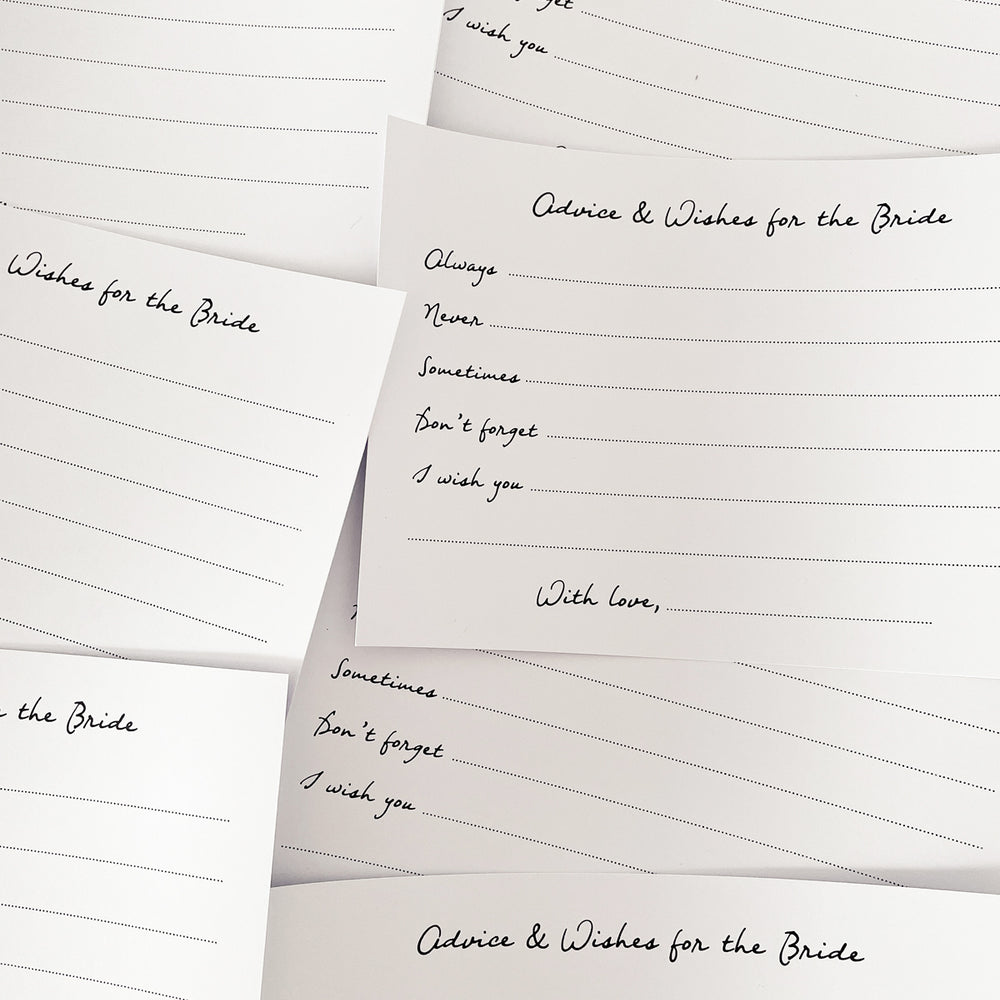 get
I wish you
Advice & Wishes for the Bride
Always
Never
Sometimes
Don't forget
I wish you
With love,
Wishes for the Bride
the Bride
Sometimes
Don't forget
I wish you
Advice & Wishes for the Bride